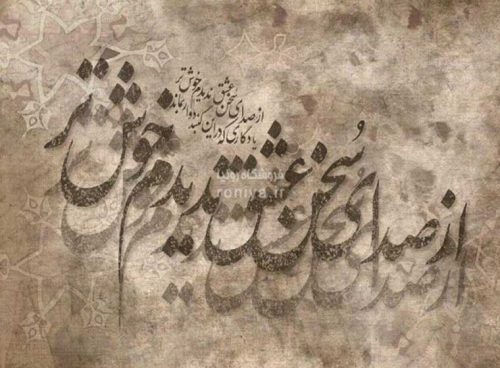 از صدای سخن عشق ندیدم خوش تر
یادگاری که در این گنبد دوار بماند
از صدای سُخن عشق ندیدم خوش تر
فروشگاه رونیا
roniya.ir